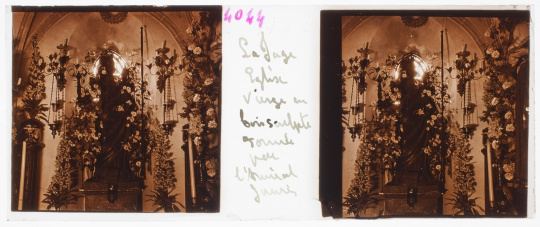 4044
La Jage
Eglise
Vierge en
bois sculpte
donnée
par
l'Amiral
Jaurès